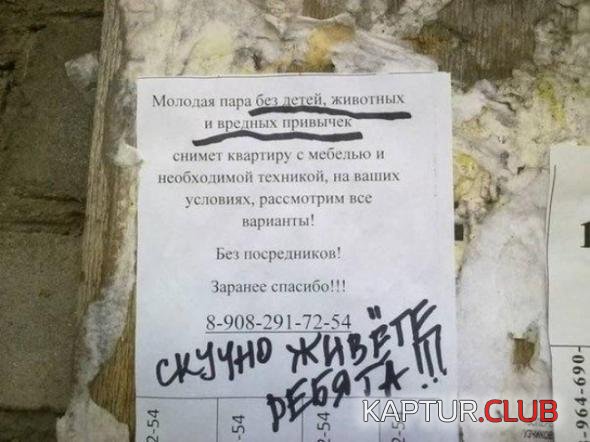 Молодая пара без детей, животных
и вредных привычек
снимет квартиру с мебелью и
необходимой техникой, на ваших
условиях, рассмотрим все
варианты!
Без посредников!
Заранее спасибо!!!
8-908-291-72-54
СКУЧНО ЖИВЁТЕ
РЕБЯТА!!!
-964-690-
KAPTUR.CLUB